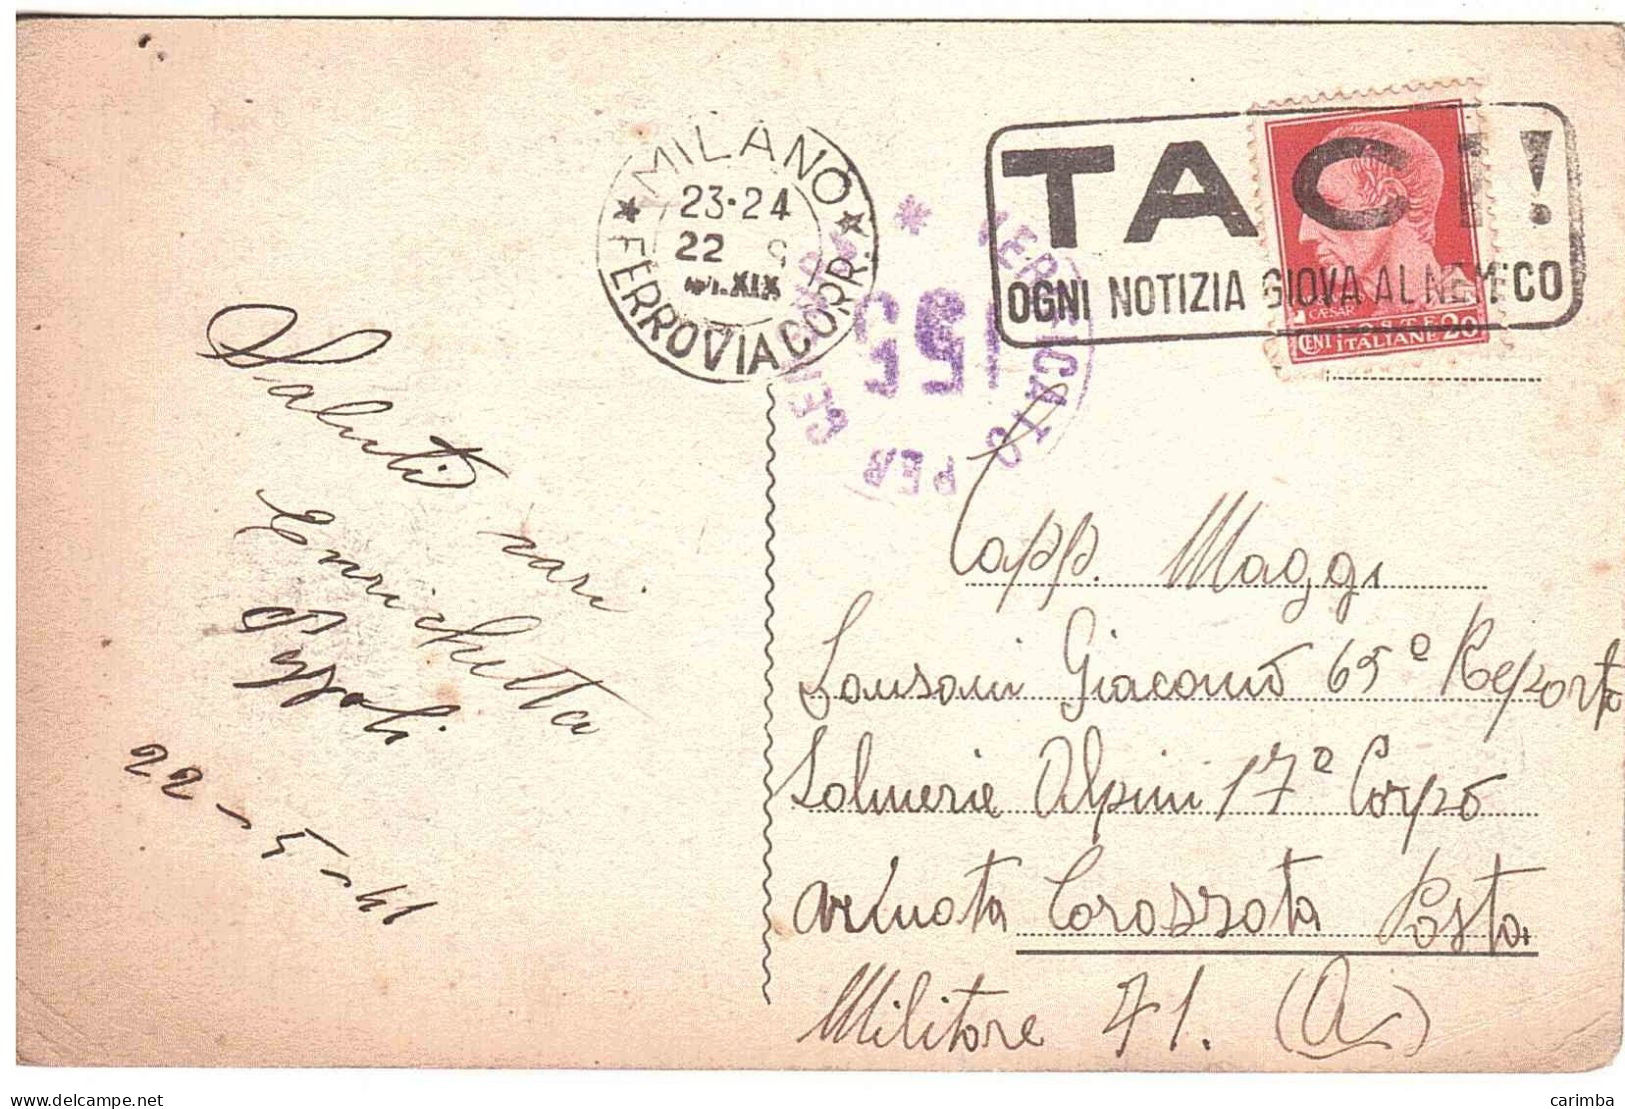 MILANO
23·24
22
XIX
FERROVIA CORR.
TACI!
OGNI NOTIZIA GIOVA AL NEMICO
CÆSAR
CENT ITALIANE 20
VERIFICATO PER CENSURA
155
Saluti cari
Enrichetta
22-5-41
Capp. Maggi
Sansoni Giacomo 65º Reporto
Salmerie Alpini 17º Corpo
Armata Corazzata Posta
Militore 71. (A)
delcampe.net
carimba